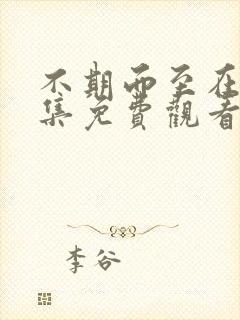 不期而至在
集免費觀看
李谷